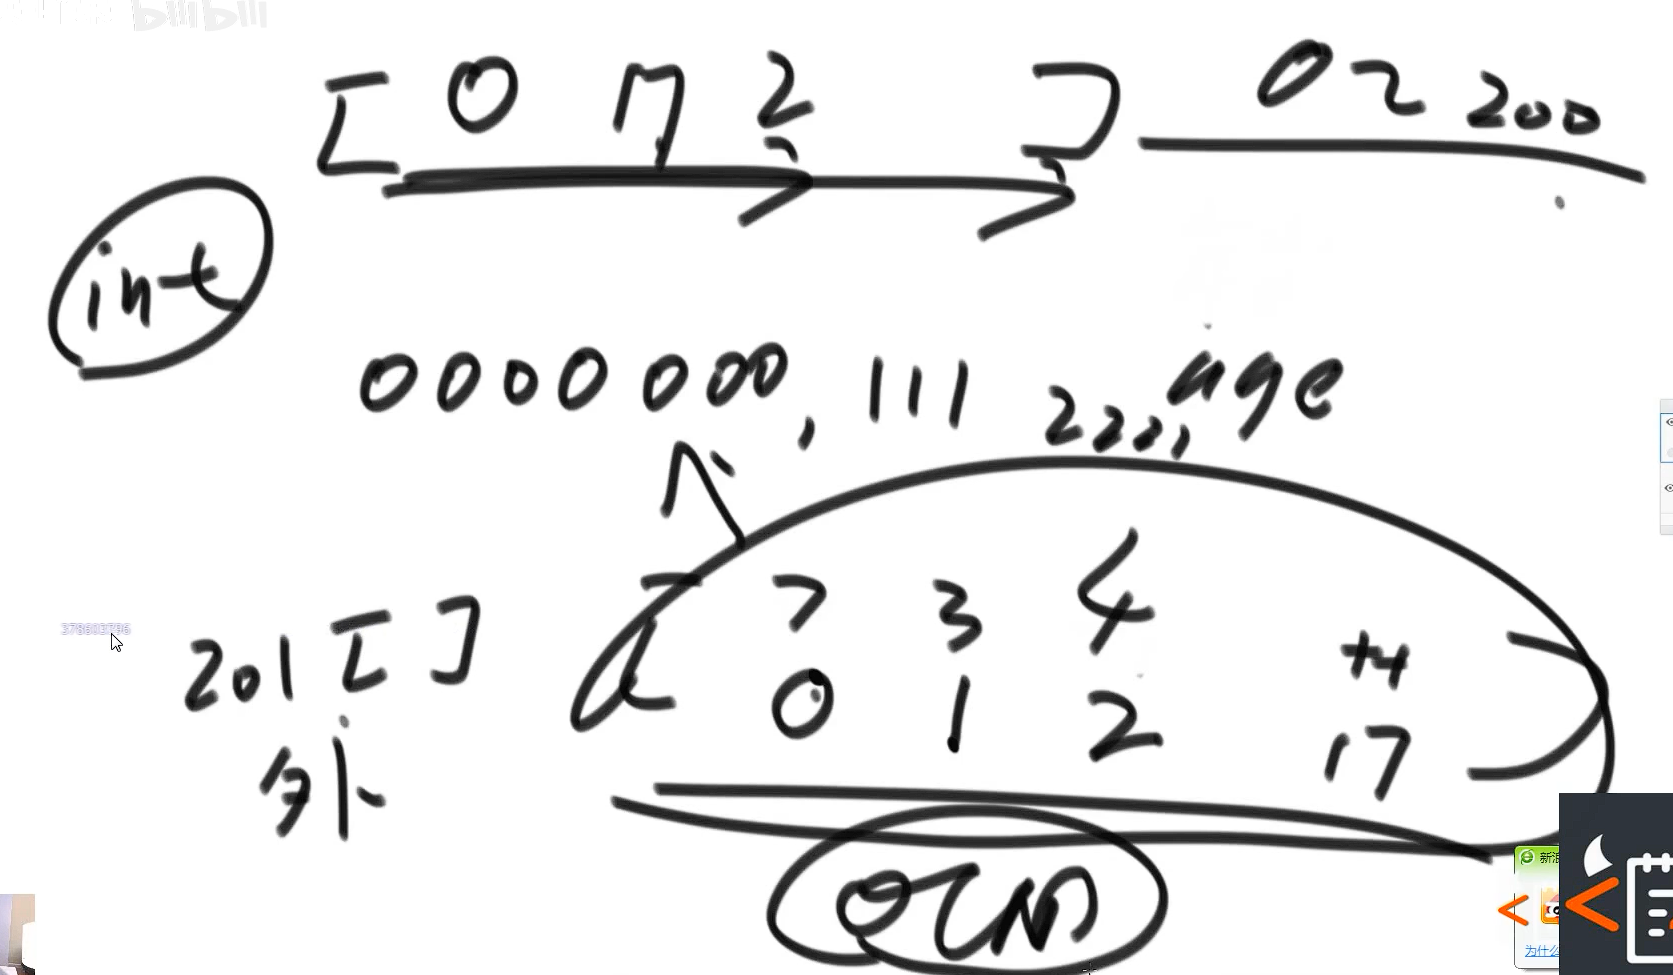 bilibili
[ 0 17 2 ] 02 200
int
00000000, 111 222, age
7 3 4 44
201 [ ] [ 0 1 2 17 ]
外
O(N)
新浪
为什么